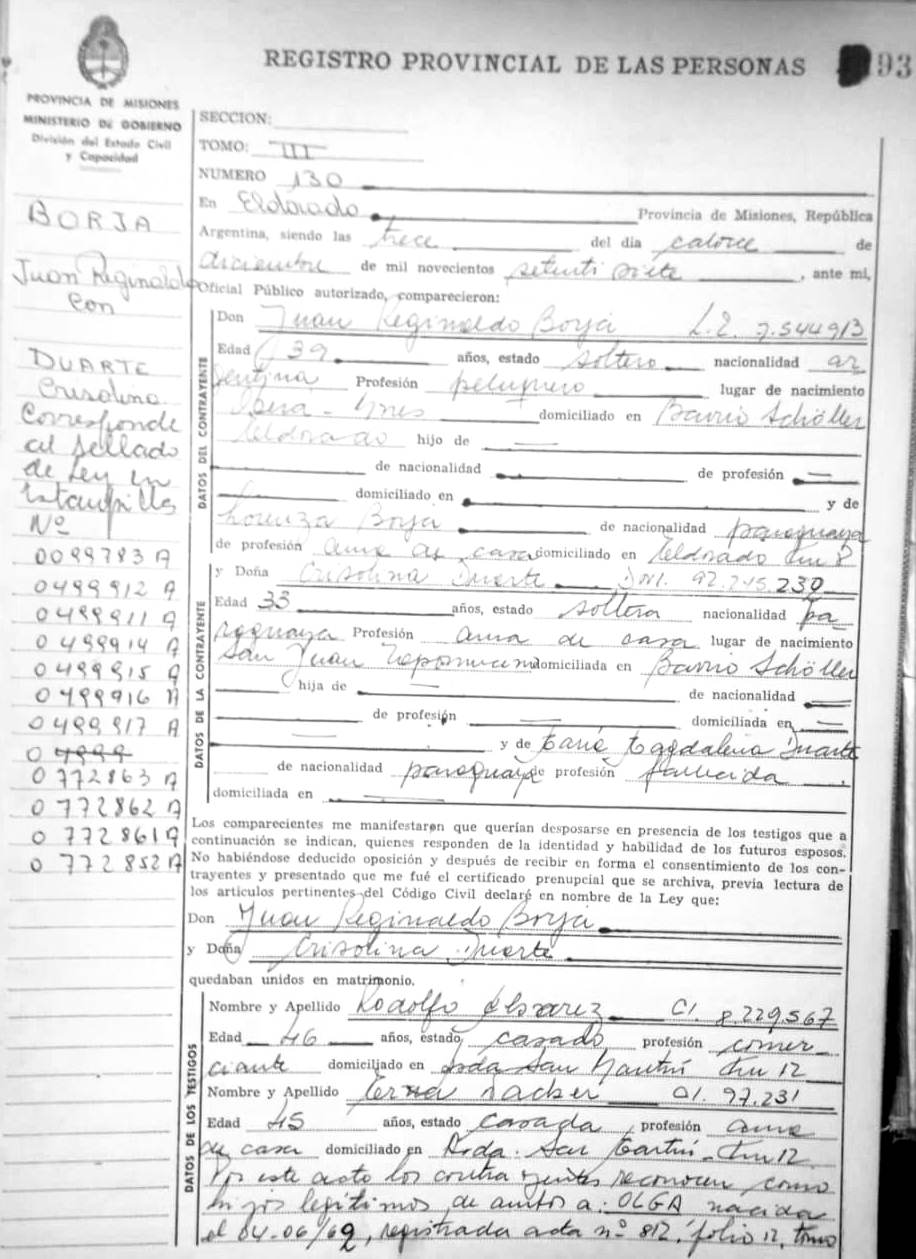 REGISTRO PROVINCIAL DE LAS PERSONAS
93
PROVINCIA DE MISIONES
MINISTERIO DE GOBIERNO
División del Estado Civil
y Capacidad
BORJA
Juan Reginaldo
Con
DUARTE
Crisolina
Corresponde
al Sellado
de Ley en
Estampillas
Nº
0499912 A
0499911 A
0499914 A
0499915 A
0499916 A
0499917 A
0 4999
0 772863 A
0 772862 A
0 772861 A
0 772852 A
SECCION:
TOMO: III
NUMERO 130
En Eldorado Provincia de Misiones, República
Argentina, siendo las trece del día catorce de
diciembre de mil novecientos setenti siete, ante mi,
Oficial Público autorizado, comparecieron:
DATOS DEL CONTRAYENTE
Don Juan Reginaldo Borja L.E. 7.544913
Edad 39 años, estado soltero nacionalidad ar
gentina Profesión peluquero lugar de nacimiento
domiciliado en Barrio Schöller
Eldorado hijo de
de nacionalidad de profesión
domiciliado en y de
Lorenza Borja de nacionalidad paraguaya
de profesión ama de casa domiciliado en Eldorado Km 8
DATOS DE LA CONTRAYENTE
y Doña Crisolina Duarte 92.245.230
Edad 33 años, estado soltera nacionalidad pa
raguaya Profesión ama de casa lugar de nacimiento
San Juan domiciliada en Barrio Schöller
hija de de nacionalidad
de profesión domiciliada en
y de María Magdalena Duarte
de nacionalidad paraguaya de profesión fallecida,
domiciliada en
Los comparecientes me manifestaron que querían desposarse en presencia de los testigos que a
continuación se indican, quienes responden de la identidad y habilidad de los futuros esposos.
No habiéndose deducido oposición y después de recibir en forma el consentimiento de los con-
trayentes y presentado que me fué el certificado prenupcial que se archiva, previa lectura de
los artículos pertinentes del Código Civil declaré en nombre de la Ley que:
Don Juan Reginaldo Borja
y Doña Crisolina Duarte
quedaban unidos en matrimonio.
DATOS DE LOS TESTIGOS
Nombre y Apellido Rodolfo Alvarez CI. 8.229.567
Edad 46 años, estado casado profesión comer
ciante domiciliado en Avda San Martín Km 12
Nombre y Apellido Erna CI. 97.231
Edad 45 años, estado casada profesión ama
de casa domiciliado en Avda. San Martín - Km 12.
Por este acto los contrayentes reconocen como
hijos legítimos de ambos a: OLGA nacida
el 04-06/62, registrada acta nº 812, folio 12, tomo